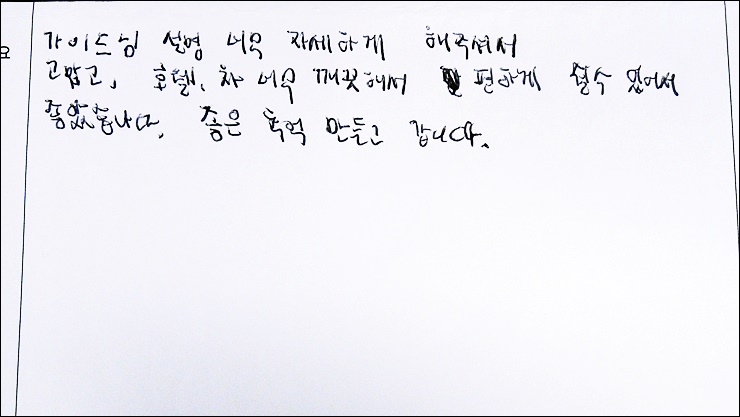 가이드님 설명 너무 자세하게 해주셔서
고맙고, 호텔, 차 너무 깨끗해서 편하게 쉴수 있어서
좋았습니다. 좋은 추억 만들고 갑니다.
요